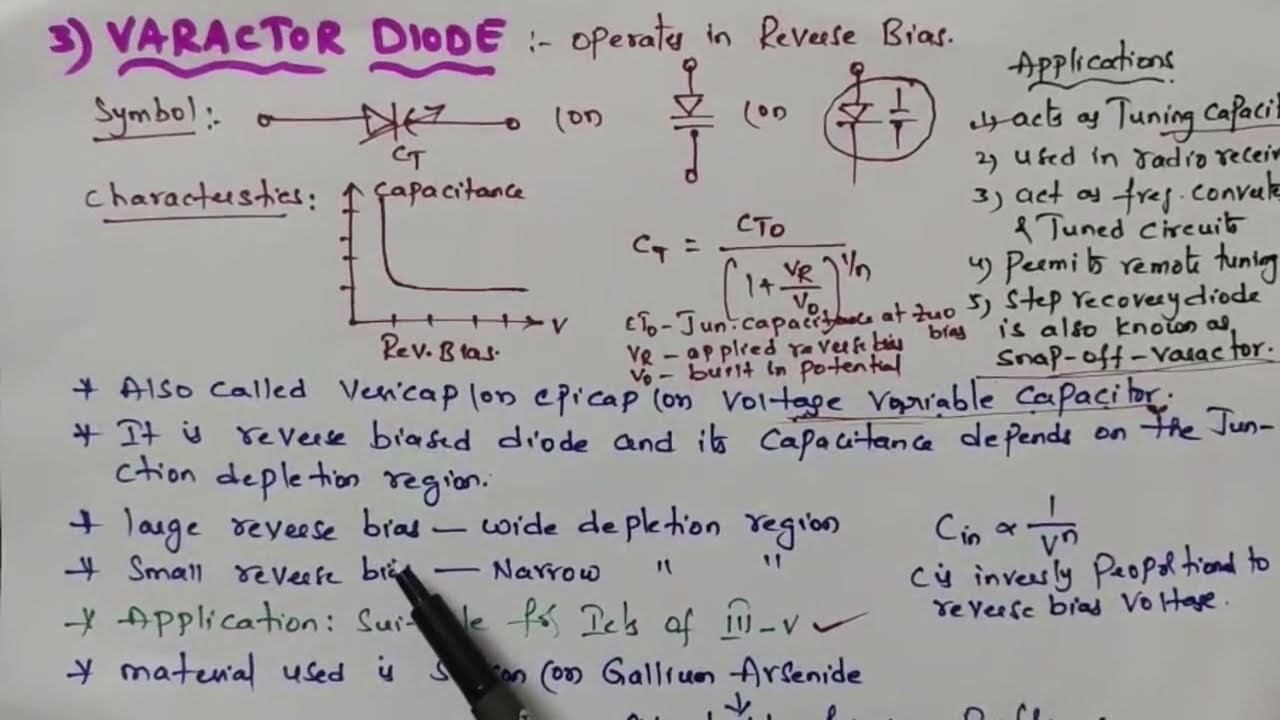 3) VARACTOR DIODE :- operates in Reverse Bias.
Symbol:- (or) (or)
CT
Characteristics:
Capacitance
V
Rev. Bias.
CT = CTO / [1 + VR/V0]^1/n
CTO - Jun. capacitance at zero bias
VR - applied reverse bias
V0 - built in potential
Applications
1) acts as Tuning Capaci
2) used in radio receiv
3) act as freq. converte
& Tuned circuits
4) Permits remote tuning
5) Step recovery diode
is also known as
snap-off-varactor.
* Also called Vericap (or) epicap (or) voltage variable capacitor.
* It is reverse biased diode and its capacitance depends on the Jun-
ction depletion region.
* large reverse bias — wide depletion region
* Small reverse bias — Narrow " "
Cin ∝ 1/V^n
C is inversly Propotional to
reverse bias voltage.
* Application: Sui le for Ics of III-V ✓
* material used is S on (or) Gallium Arsenide